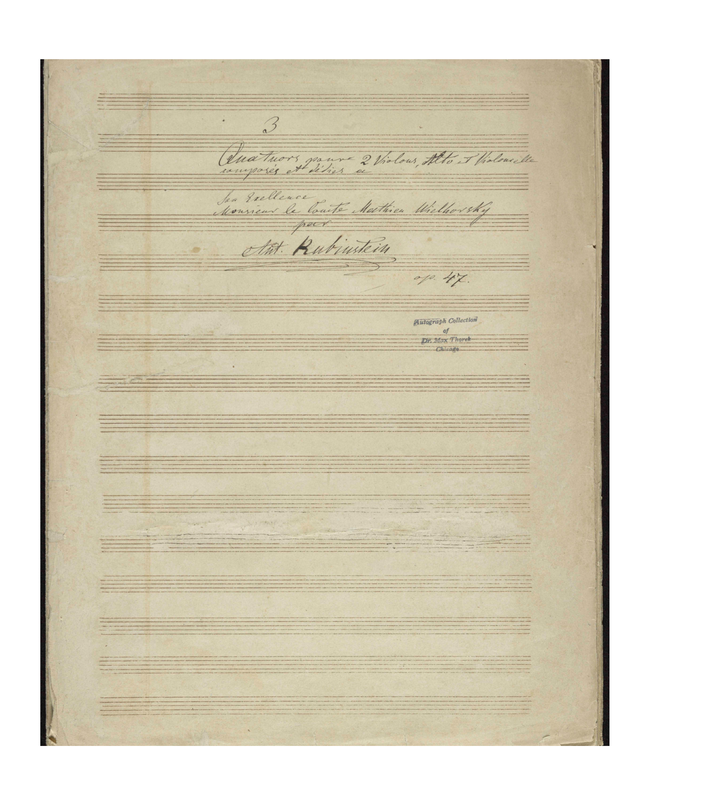 3
Quatuors pour 2 Violons, Alto et Violoncelle
composés et dédiés à
Son Excellence
Monsieur le Comte Mathieu Wielhorsky
par
Ant. Rubinstein
op. 47.
Autograph Collection
of
Dr. Max Thorek
Chicago